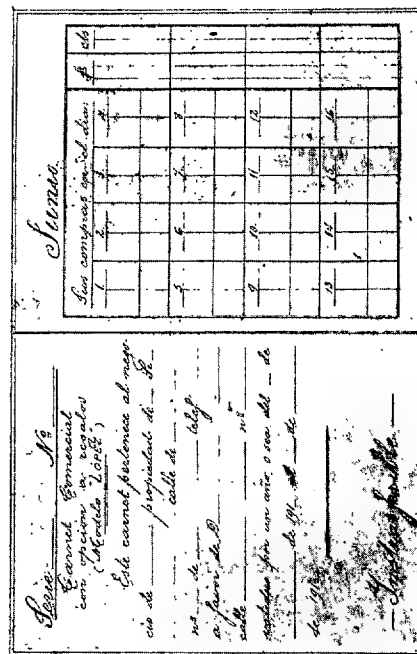 Serie Nº
Carnet Comercial
con opción a regalos
(Modelo "LÓPEZ")
Este carnet pertenece al nego-
cio de propiedad de
calle de
nº de telef
a favor de D
calle nº
valedero por un año, o sea del de
de 19 al de
de 19
Junio
Sus compras en el dia: $ cts
1 2 3 4
5 6 7 8
9 10 11 12
13 14 15 16